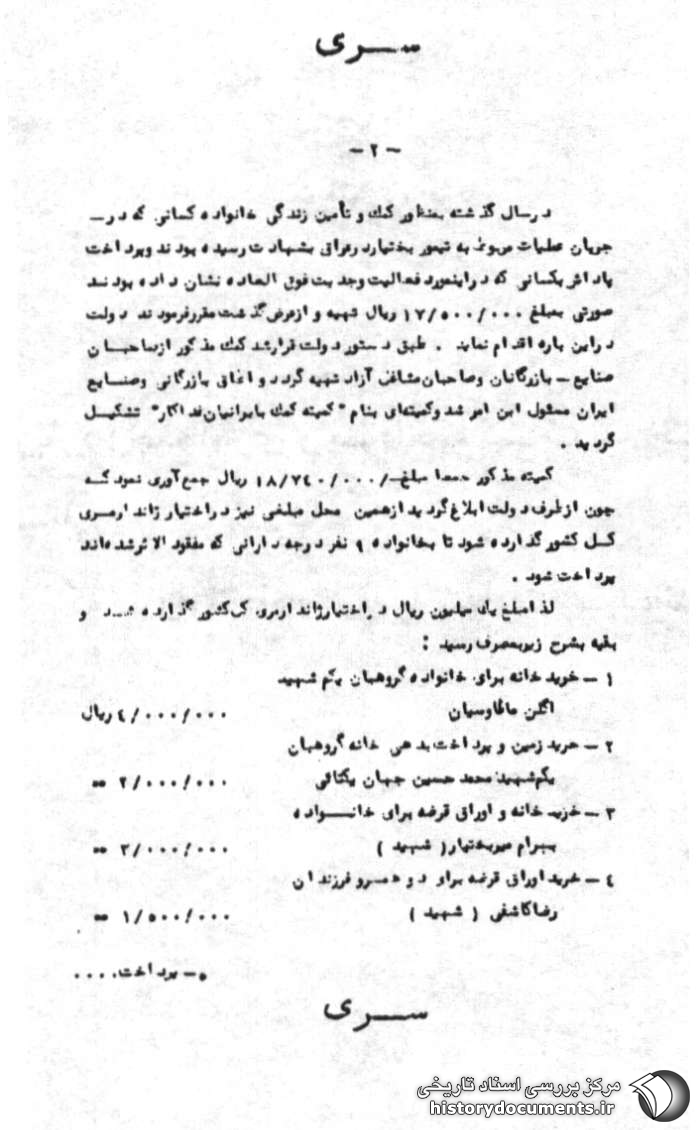 سری
- ۲ -
در سال گذشته بمنظور کمک و تأمین زندگی خانواده کسانی که در -
جریان عملیات مربوط به تیمور بختیار در عراق بشهادت رسیده بودند و پرداخت
پاداش بکسانی که در اینمورد فعالیت و جدیت فوق العاده نشان داده بودند
صورتی بمبلغ ۱۷/۵۰۰/۰۰۰ ریال تهیه و از عرض گذشت مقرر فرمودند دولت
در این باره اقدام نماید . طبق دستور دولت قرار شد کمک مذکور از صاحبان
صنایع - بازرگانان و صاحبان مشاغل آزاد تهیه گردد و اطاق بازرگانی و صنایع
ایران مسئول این امر شد و کمیته‌ای بنام "کمیته کمک بایرانیان فداکار" تشکیل
گردید .
کمیته مذکور جمعا مبلغ ۱۸/۷۴۰/۰۰۰ ریال جمع‌آوری نمود که
چون از طرف دولت ابلاغ گردید از همین محل مبلغی نیز در اختیار ژاندارمری
کل کشور گذارده شود تا بخانواده ۹ نفر درجه دارانی که مفقود الاثر شده‌اند
پرداخت شود .
لذا مبلغ یک میلیون ریال در اختیار ژاندارمری کل کشور گذارده شد و
بقیه بشرح زیر بمصرف رسید :
۱ - خرید خانه برای خانواده گروهبان یکم شهید
۴/۰۰۰/۰۰۰ ریال
۲ - خرید زمین و پرداخت بدهی خانه گروهبان
یکم شهید محمد حسین جهان یکتائی ۲/۰۰۰/۰۰۰ "
۳ - خرید خانه و اوراق قرضه برای خانواده
بهرام میربختیار ( شهید ) ۳/۰۰۰/۰۰۰ "
۴ - خرید اوراق قرضه برای دو همسر و فرزندان
رضا کاشفی ( شهید ) ۱/۵۰۰/۰۰۰ "
۵ - پرداخت . . . .
سری
مرکز بررسی اسناد تاریخی
historydocuments.ir